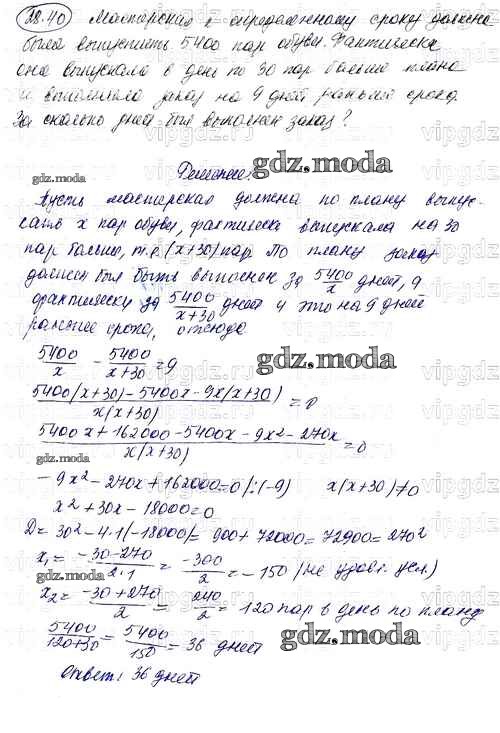 28.40 Мастерская к определенному сроку должна
была выпустить 5400 пар обуви. Фактически
она выпускала в день по 30 пар больше плана
и выполнила заказ на 9 дней раньше срока.
За сколько дней был выполнен заказ?
Решение:
gdz.moda
gdz.moda
Пусть мастерская должна по плану выпус-
кать x пар обуви, фактически выпускала на 30
пар больше, т.е. (x+30) пар. По плану заказ
должен был быть выполнен за 5400/x дней, а
фактически за 5400/(x+30) дней и это на 9 дней
раньше срока, отсюда
5400/x - 5400/(x+30) = 9
gdz.moda
(5400(x+30) - 5400x - 9x(x+30))/(x(x+30)) = 0
(5400x + 162000 - 5400x - 9x² - 270x)/(x(x+30)) = 0
gdz.moda
-9x² - 270x + 162000 = 0 |:(-9) x(x+30)≠0
x² + 30x - 18000 = 0
D = 30² - 4·1·(-18000) = 900 + 72000 = 72900 = 270²
x₁ = (-30-270)/(2·1) = -300/2 = -150 (не удовл. усл.)
gdz.moda
x₂ = (-30+270)/2 = 240/2 = 120 пар в день по плану
5400/(120+30) = 5400/150 = 36 дней
gdz.moda
Ответ: 36 дней